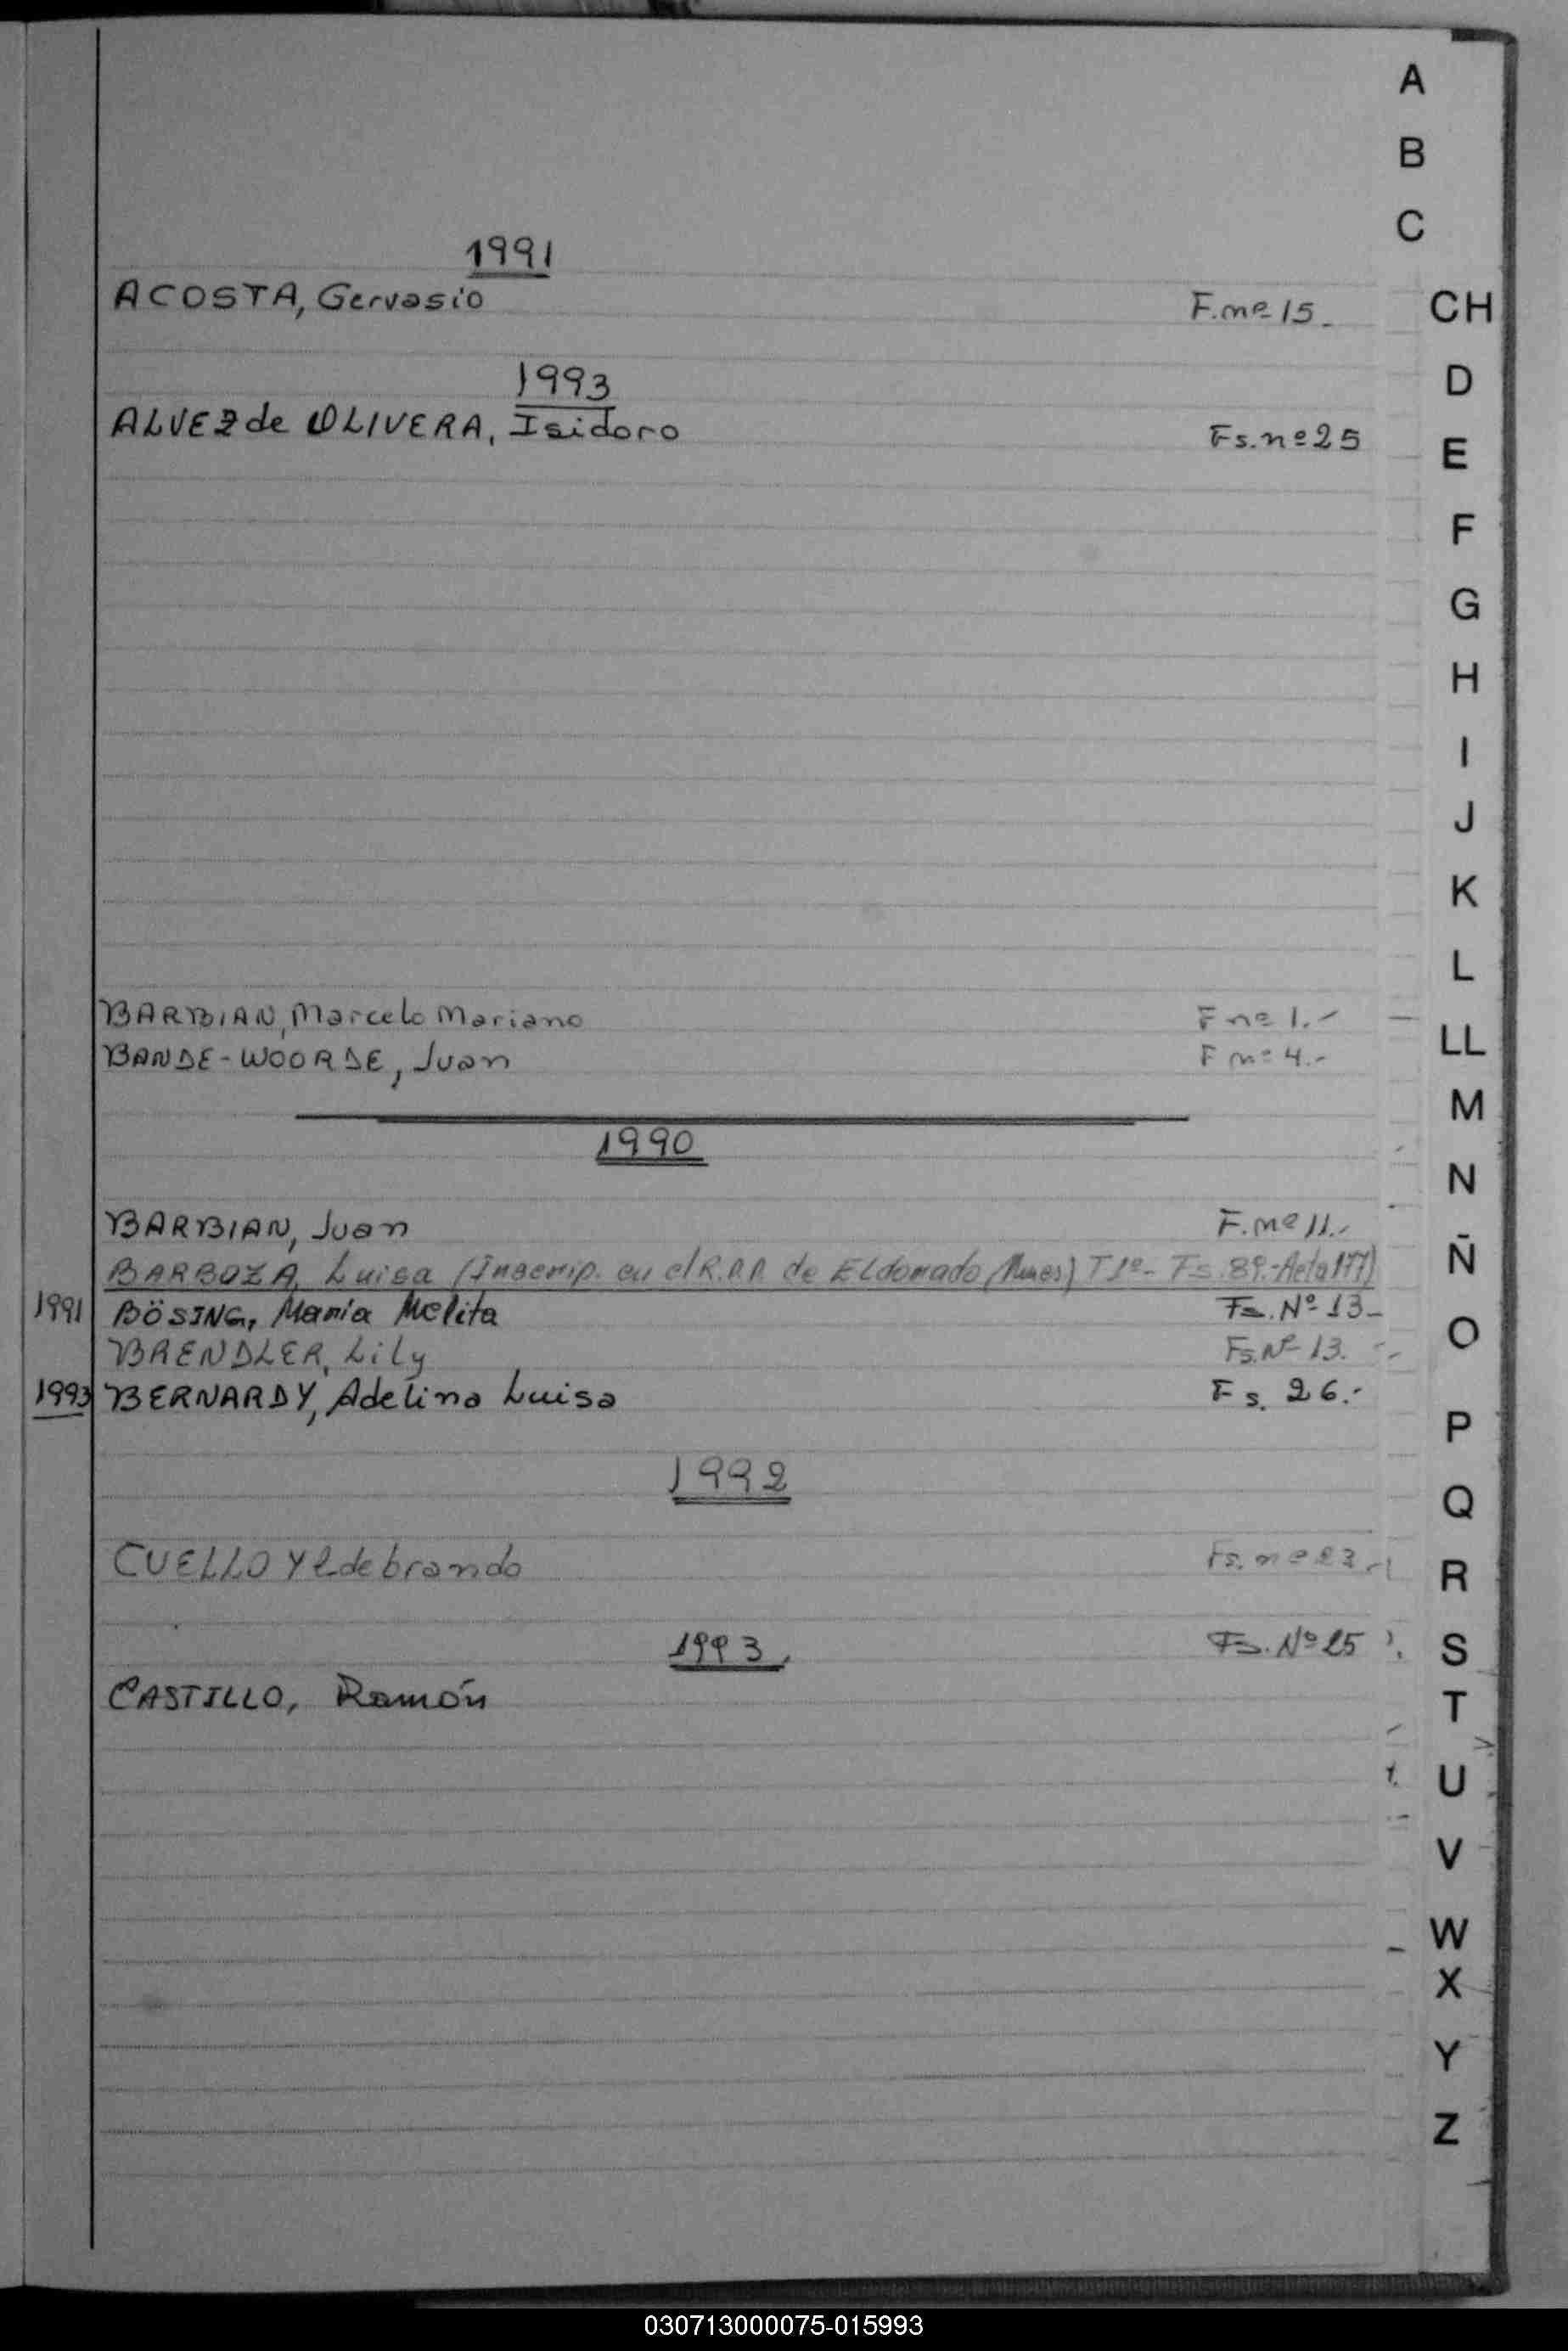 A
B
C
1991
ACOSTA, Gervasio F. nº 15.-
CH
1993
D
ALVEZ de OLIVERA, Isidoro Fs. nº 25
E
F
G
H
I
J
K
L
BARBIAN, Marcelo Mariano F nº 1.-
LL
BANDE-WOORDE, Juan F nº 4.-
M
1990
N
BARBIAN, Juan F. nº 11.-
Ñ
BARBOZA, Luisa (Inscrip. en el R.P.P. de Eldorado, Mnes) T 1º- Fs. 89.- Acta 177)
1991 BÖSING, María Melita Fs. Nº 13-
O
BRENDLER, Lily Fs. Nº 13.
1993 BERNARDY, Adelina Luisa Fs. 26.-
P
1992
Q
CUELLO Yldebrando Fs. nº 23.-
R
1993. Fs. Nº 25
S
CASTILLO, Ramón
T
U
V
W
X
Y
Z
030713000075-015993